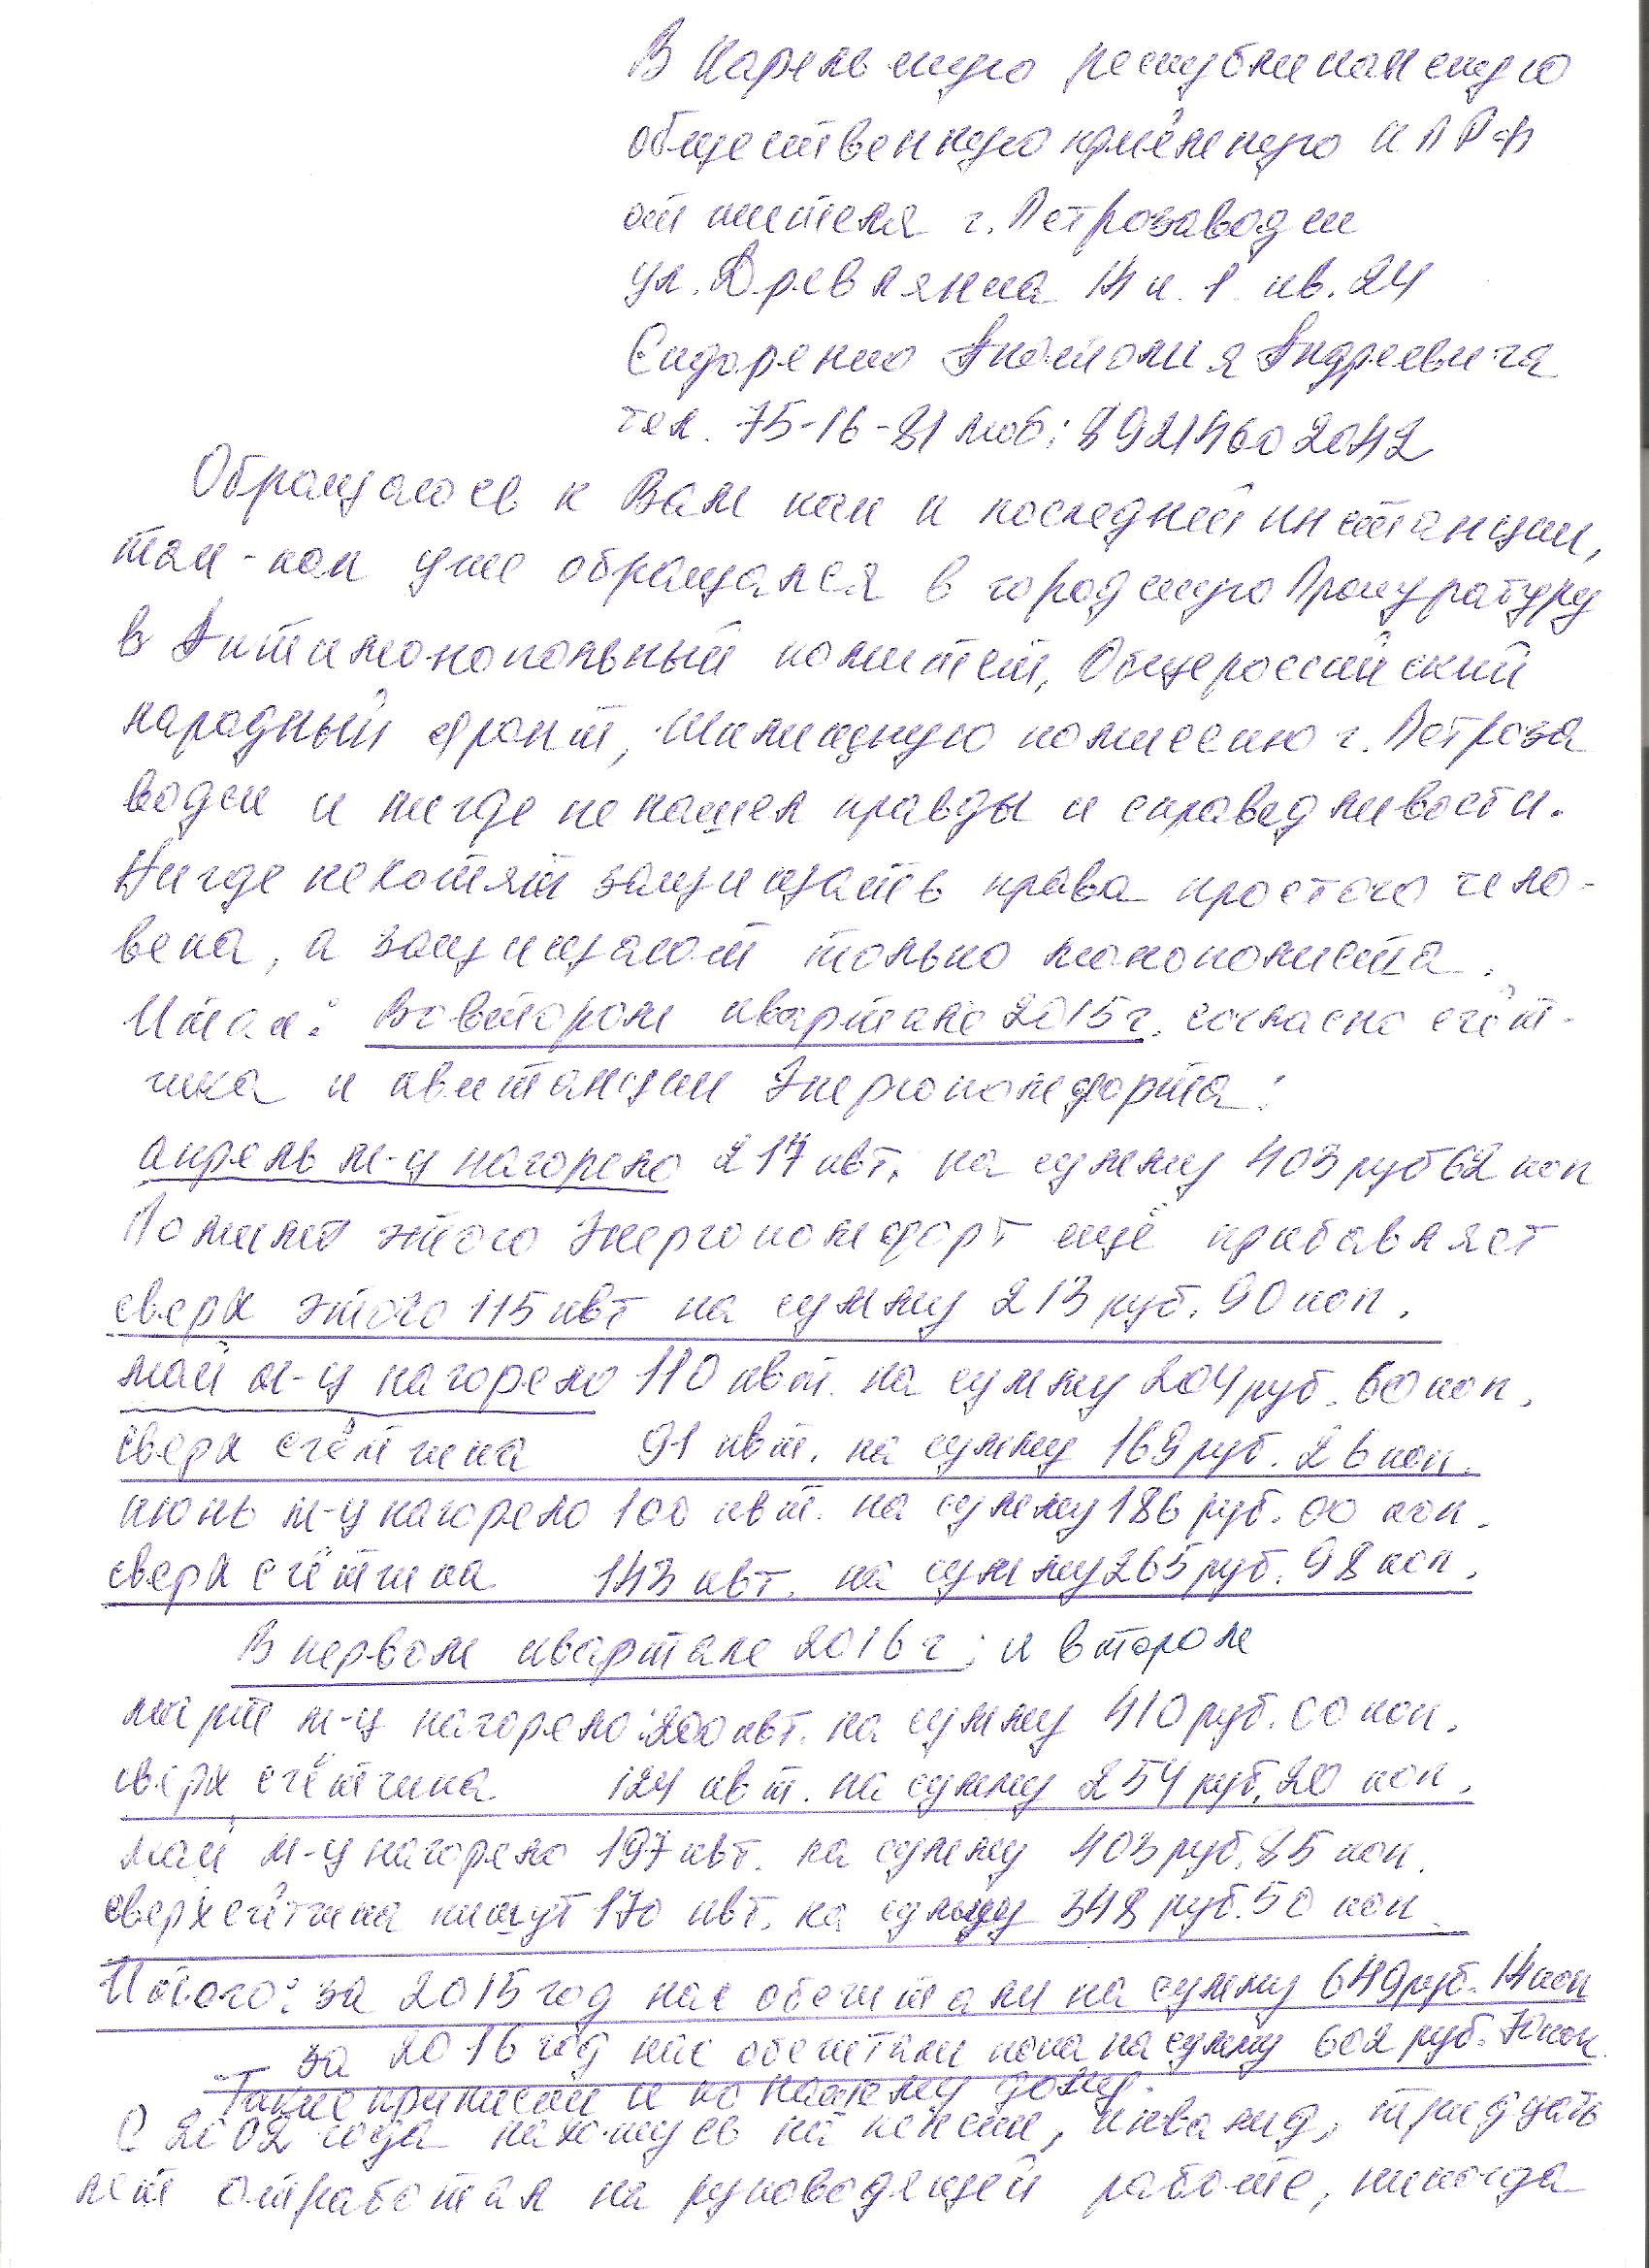 В Карельскую республиканскую
общественную приёмную КПРФ
от жителя г. Петрозаводск
ул. Древлянка 14 к. 1 кв. 24
Сидоренко Анатолия Андреевича
тел. 75-16-81 моб: 89214602042
Обращаюсь к Вам как к последней инстанции,
так-как уже обращался в городскую Прокуратуру
в Антимонопольный комитет, Общероссийский
народный фронт, Жилищную комиссию г. Петроза
водск и нигде не нашел правды и справедливости.
Нигде не хотят защищать права простого чело-
века, а защищают только монополиста.
Итак: Во втором квартале 2015 г. согласно счёт-
чика и квитанции Энергокомфорта:
апрель м-ц нагорело 217 квт. на сумму 403 руб 62 коп
Помимо этого Энергокомфорт ещё прибавляет
сверх этого 115 квт на сумму 213 руб. 90 коп.
май м-ц нагорело 110 квт. на сумму 204 руб. 60 коп.
сверх счётчика 91 квт. на сумму 169 руб. 26 коп.
июнь м-ц нагорело 100 квт. на сумму 186 руб. 00 коп.
сверх счётчика 143 квт. на сумму 265 руб. 98 коп.
В первом квартале 2016 г. и втором
март м-ц нагорело: 200 квт. на сумму 410 руб. 00 коп.
сверх счётчика 124 квт. на сумму 254 руб. 20 коп.
май м-ц нагорело 197 квт. на сумму 403 руб. 85 коп.
сверх счётчика пишут 170 квт. на сумму 348 руб. 50 коп
Итого: за 2015 год нас обсчитали на сумму 649 руб. 14 коп
за 2016 год нас обсчитали пока на сумму 602 руб. 70 коп.
Такие приписки и по нашему дому.
С 2002 года нахожусь на пенсии, инвалид, тридцать
лет отработал на руководящей работе, никогда